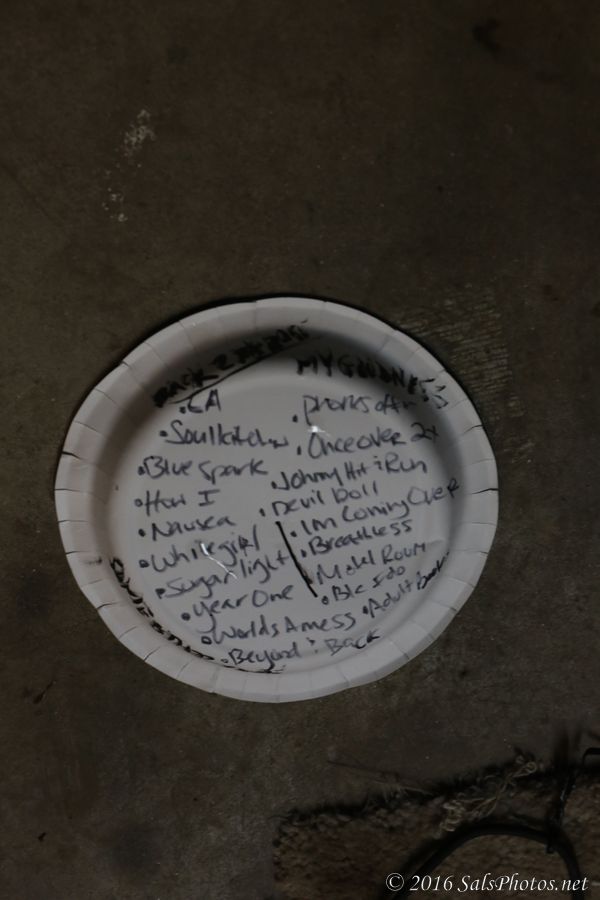 MY GOODNESS
• LA
• Soulkitchen
• Blue Spark
• How I
• Nausea
• Whitegirl
• Sugarlight
• Year One
• Worlds A mess
• Beyond & Back
• phones off
• Onceover 2x
• Johnny Hit & Run
• Devil Doll
• Im Coming Over
• Breathless
• Motel Room
• Adult Books
© 2016 SalsPhotos.net